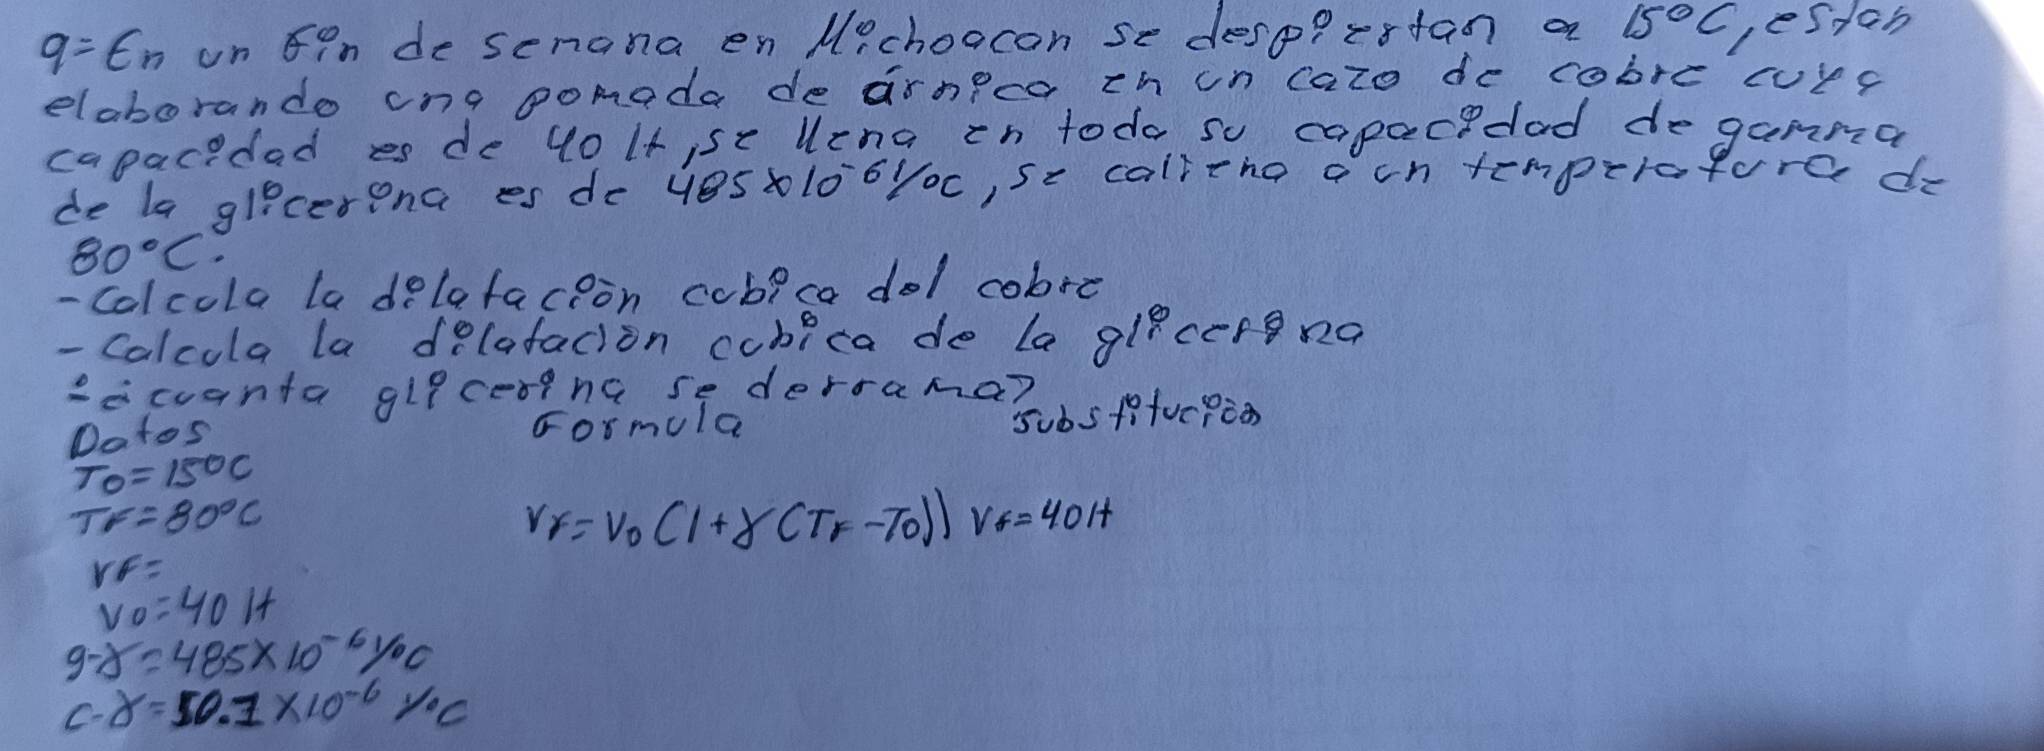 9=En un fin de semana en Michoacan se despiertan a 15°C, estan
elaborando una pomada de árnica en un cazo de cobre cuya
capacidad es de 40 lt, se llena en toda su capacidad de gamma
de la glicerina es de 485x10⁻⁶ 1/°C, se caliena a un temperatura de
80°C.
- Calcula la dilatación cubica del cobre
- Calcula la dilatación cubica de la glicerina
- ¿cuanta glicerina se derrama?
Datos Formula Substitución
To=15°C
TF=80°C VF=Vo(1+γ(TF-To)) VF=40lt
VF=
Vo=40 lt
g-γ=485x10⁻⁶ 1/°C
C-γ=50.1x10⁻⁶ 1/°C